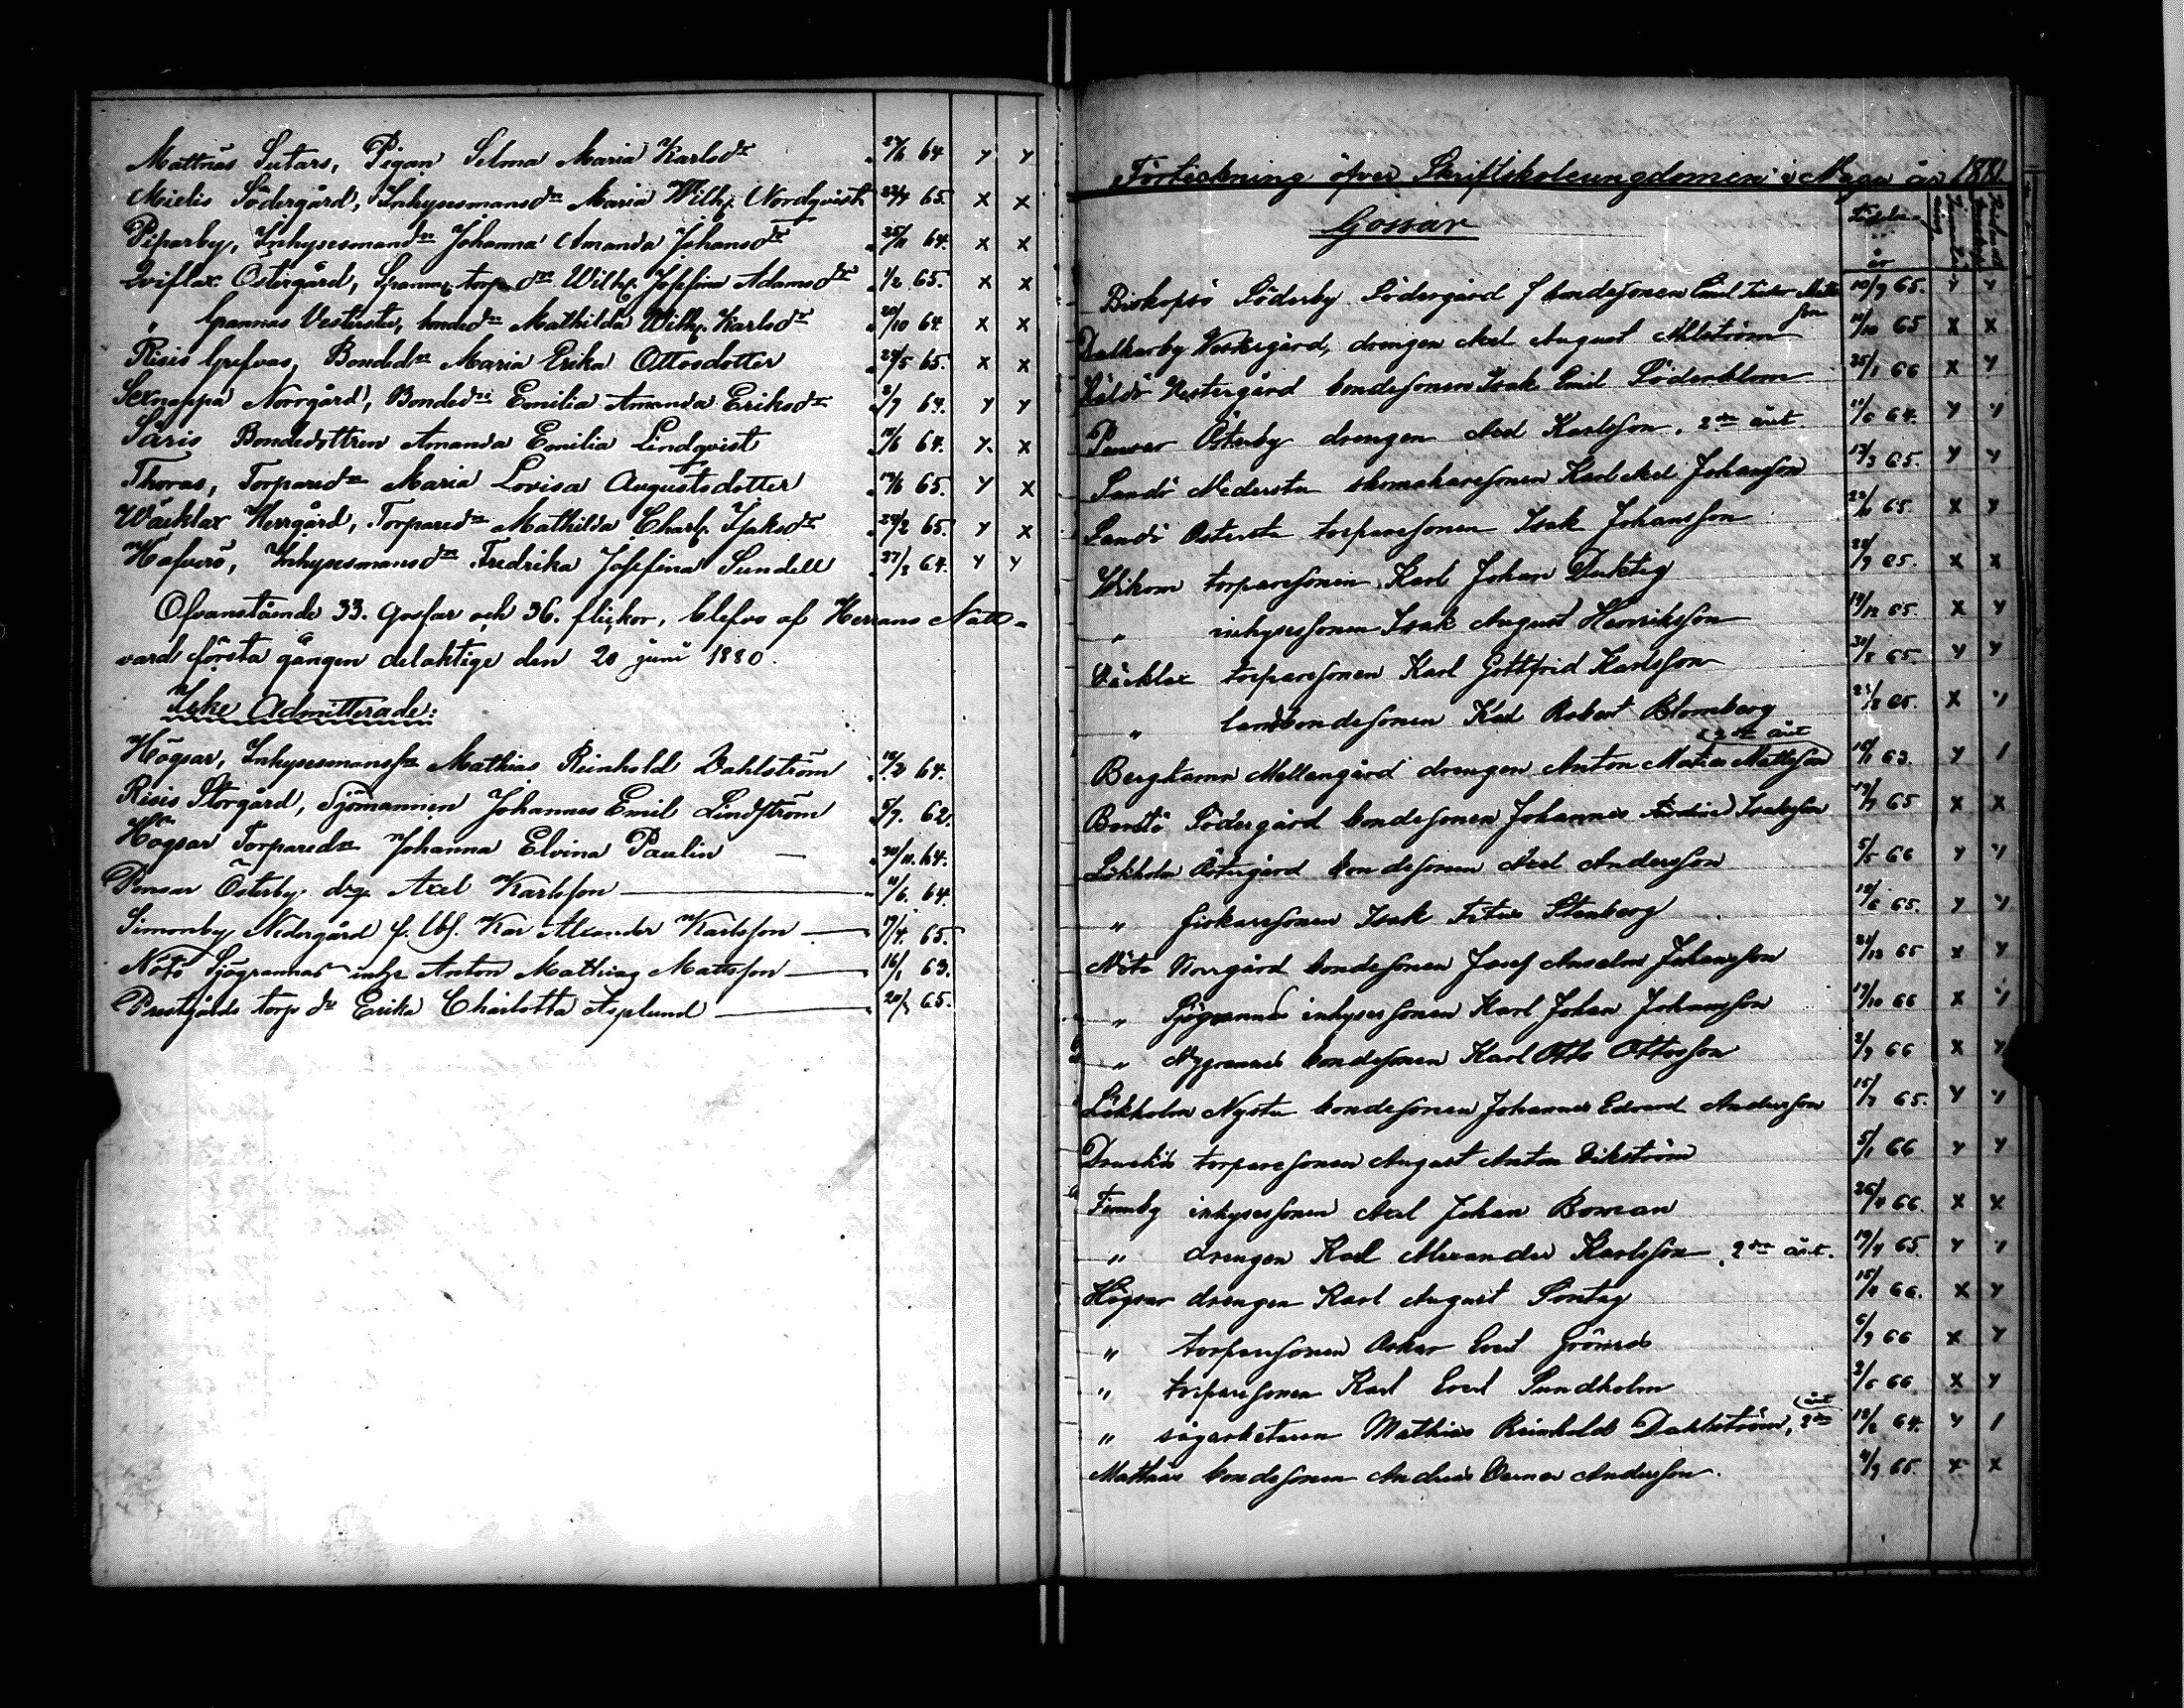 Mattnäs Sutars, Pigan Selma Maria Karlsdr 64 y y
Mielis Södergård, Inhysesmansdn Maria Wilh. Nordqvist 22/4 65. x x
Piparby, Inhysesmandn Johanna Amanda Johansdr 25/11 64. x x
Qviflax Östergård, torpdn Wilh. Josefina Adamsdr 1/2 65. x x
" Grannas Vesterstu, bondedn Mathilda Wilh. Karlsdr 20/10 64. x x
Risis Grefvas, Bondedn Maria Erika Ottosdotter 24/5 65. x x
Sexnappa Norrgård, Bondedn Emilia Amanda Eriksdr 3/7 64. y y
Säris Bondedottren Amanda Emilia Lindqvist 64. x x
Thoras, Torparedn Maria Lovisa Augustsdotter 65. y x
Wäcklax Herrgård, Torparedn Mathilda Charl. Isaksdr 24/2 65. y x
Hafverö, Inhysesmansdn Fredrika Josefina Sundell 27/3 64. y y
Ofvanstående 33. Gossar och 36. flickor, blefvo af Herrans Natt-
vard första gången delaktige den 20 juni 1880.
Icke Admitterade:
Högsar, Inhysesmanssn Mathias Reinhold Dahlström 12/2 64.
Risis Storgård, Sjömannen Johannes Emil Lindström 5/7. 62.
Högsar Torparedn Johanna Elvina Paulin — 30/11. 64.
Pensar Österby. drg. Axel Karlsson — 11/6. 64.
Simonby Nedergård f. Kar Alexander Karlsson — 19/4. 65.
Nötö Sjögrannas inh. Anton Mathias Mattsson — 16/1 63.
Prestgårds torp dr Erika Charlotta Asplund — 65.
Förteckning öfver Skriftskoleungdomen i Nagu år 1881
Gossar
år
Biskopsö Söderby Södergård bondesonen Emil Matts 10/9 65. y y
son
Dalkarby Westergård, drengen Axel August Ahlström 11/10 65 x x
Westergård bondesonen Isak Emil Söderblom 25/1 66 x y
Pensar Österby drengen Axel Karlsson. 2dra året 11/6 64. y y
Sandö Nederstu skomakaresonen Karl Axel Johansson 17/3 65. y y
Sandö Österstu torparesonen Isak Johansson 65. x y
Wikom torparesonen Karl Johan Duktig 65. x x
" inhysessonen Isak August Henriksson 14/12 65. x y
Väcklax torparesonen Karl Gottfrid Karlsson 65. y y
" landbondesonen Karl Robert Blomberg 65. x y
2dra året
Berghamn Mellangård drengen Anton Matias Mattsson 16/1 63. y /
Borstö Södergård bondesonen Johannes Isaksson 65 x x
Lökholm Östergård bondesonen Axel Andersson 5/5 66 y y
" fiskaresonen Isak Stenberg 12/6 65. y y
Nötö Norrgård bondesonen Josef Anselm Johansson 21/12 65 x y
" Sjögrannas inhysessonen Karl Johan Johansson 19/10 66 x y
" Nygrannas bondesonen Karl Otto Ottosson 2/9 66 x y
Lökholm Nystu bondesonen Johannes Edvard Andersson 15/7 65. y y
torparesonen August Anton Vikström 5/1 66 y y
Finnby inhysessonen Axel Johan Boman 26/4 66. x x
" drengen Karl Alexander Karlsson. 2dra året. 19/4 65. y y
Högsar drengen Karl August Sontag 66. x y
" torparesonen Oskar Evert Grönroos 6/9 66 x y
" torparesonen Karl Evert Sundholm 2/6 66 x y
året
" sågarbetaren Mathias Reinhold Dahlström, 2dra 12/2 64. y /
Mattnäs bondesonen Andreas Verner Andersson. 4/9 65 x x